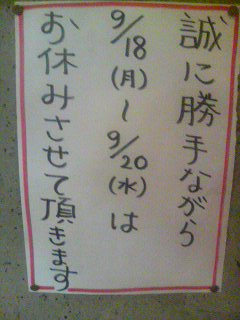 誠に勝手ながら
9/18(月)〜9/20(水)は
お休みさせて頂きます